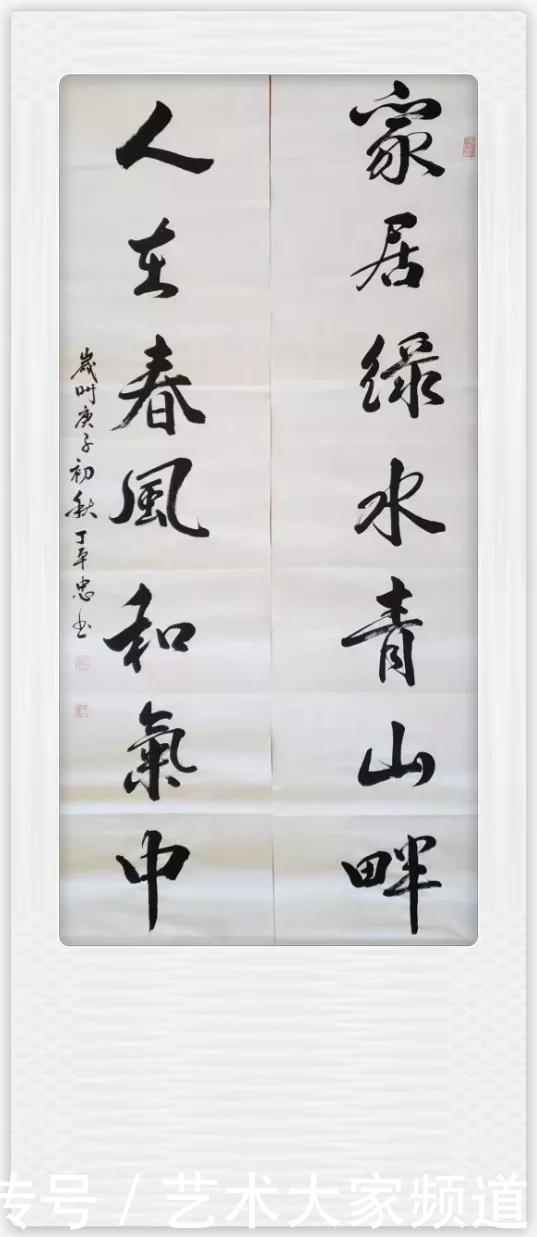 家居绿水青山畔
人在春风和氣中
歲叶庚子初秋丁平忠书
传号 / 艺术大家频道